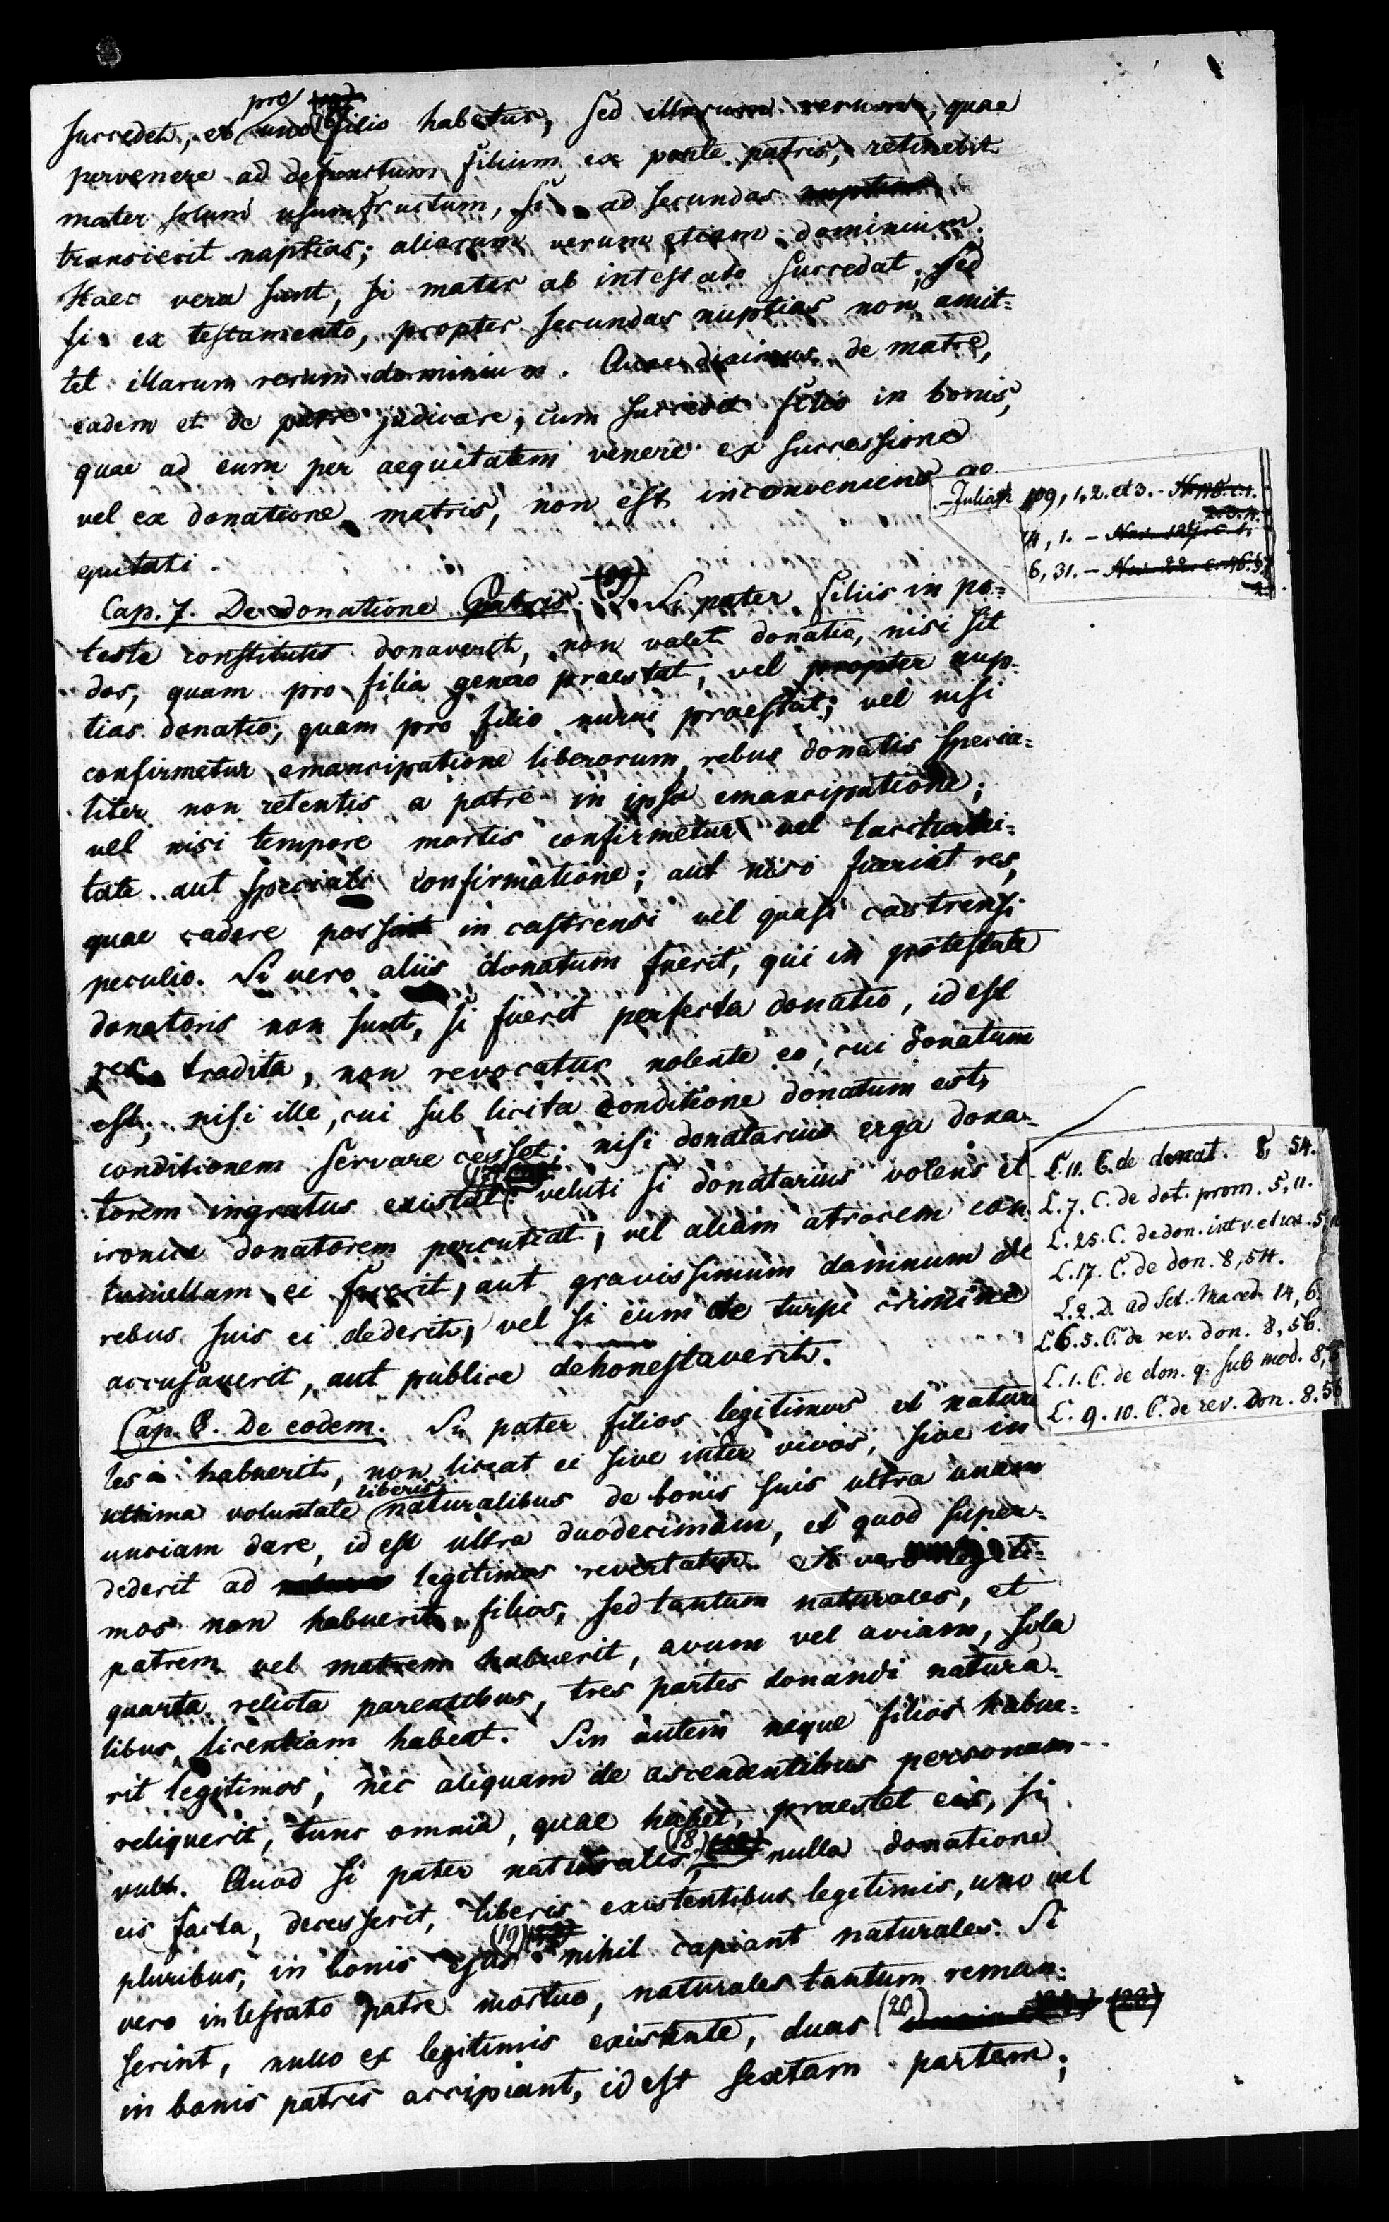 succedet, et pro uno (16) filio habetur, sed illarum rerum, quae
pervenere ad defunctum filium ex parte patris, retinebit
mater solum usumfructum, si ad secundas
transierit nuptias; aliarum rerum etiam dominium.
Haec vera sunt, si mater ab intestato succedat; sed
si ex testamento, propter secundas nuptias non amit-
tet illarum rerum dominium. Quae diximus de matre,
eadem et de patre judicare, cum succedit filio in bonis,
quae ad eum per aequitatem venere ex successione
vel ex donatione matris, non est inconveniens
aequitati.
Julian 109, 1, 2. et 3. -
14, 1. -
6, 31. -
Cap. 7. De donatione Patris. Si pater filiis in po-
teste constitutis donaverit, non valet donatio, nisi sit
dos, quam pro filia genero praestat, vel propter nup-
tias donatio, quam pro filio nurui praestat; vel nisi
confirmetur emancipatione liberorum, rebus donatis specia-
liter non retentis a patre in ipsa emancipatione;
vel nisi tempore mortis confirmetur vel taciturni-
tate aut speciali confirmatione; aut nisi fuerint res,
quae cadere possint in castrensi vel quasi castrensi
peculio. Si vero aliis donatum fuerit, qui in potestate
donatoris non sunt, si fuerit perfecta donatio, id est
res tradita, non revocatur nolente eo, cui donatum
est, nisi ille, cui sub licita conditione donatum est,
conditionem servare cesset; nisi donatarius erga dona-
torem ingratus existat (17) veluti si donatarius volens et
ironice donatorem percutiat, vel aliam atrocem con-
tumeliam ei fecerit, aut gravissimum damnum de
rebus suis ei dederit, vel si eum de turpi crimine
accusaverit, aut publice dehonestaverit.
L. 11. C. de donat. 8, 54.
L. 7. C. de dot. prom. 5, 11.
L. 25. C. de don. int. v. et ux. 5,
L. 17. C. de don. 8, 54.
L. 2. D. ad Sct. Maced. 14, 6.
L. 6. 5. C. de rev. don. 8, 56.
L. 1. C. de don. q. sub mod. 8,
L. 9. 10. C. de rev. don. 8. 56
Cap. 8. De eodem. Si pater filios legitimos et natura
les habuerit, non liceat ei sive inter vivos, sive in
ultima voluntate liberis naturalibus de bonis suis ultra unam
unciam dare, id est ultra duodecimam, et quod super-
dederit ad legitimos revertatur. Si vero legiti-
mos non habuerit filios, sed tantum naturales, et
patrem vel matrem habuerit, avum vel aviam, sola
quarta relicta parentibus, tres partes donandi natura-
libus licentiam habeat. Sin autem neque filios habue-
rit legitimos, nec aliquam de ascendentibus personam
reliquerit, tunc omnia, quae habet, praestet eis, si
vult. Quod si pater naturalis, (18) nulla donatione
eis facta, decesserit, liberis existentibus legitimis, uno vel
pluribus, in bonis ejus (19) nihil capiant naturales. Si
vero intestato patre mortuo, naturales tantum reman-
serint, nullo ex legitimis existente, duas (20)
in bonis patris accipiant, id est sextam partem;